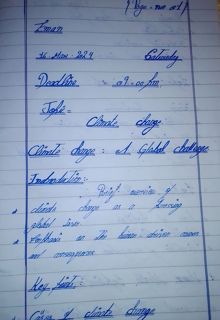 Eman
Deadline : 09:00 Pm
Topic:-
Climate change
Climate change : A Global challenge
Introduction:-
Brief overview of
climate change as a
global issue
Emphasis on the human driven causes
and consequences
Key Points:-
Causes of climate change